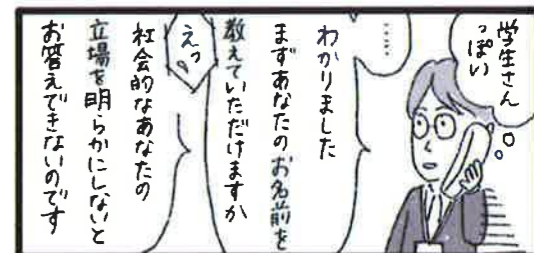 学生さん
っぽい
……
わかりました
まずあなたのお名前を
教えていただけますか
えっ
社会的なあなたの
立場を明らかにしないと
お答えできないのです